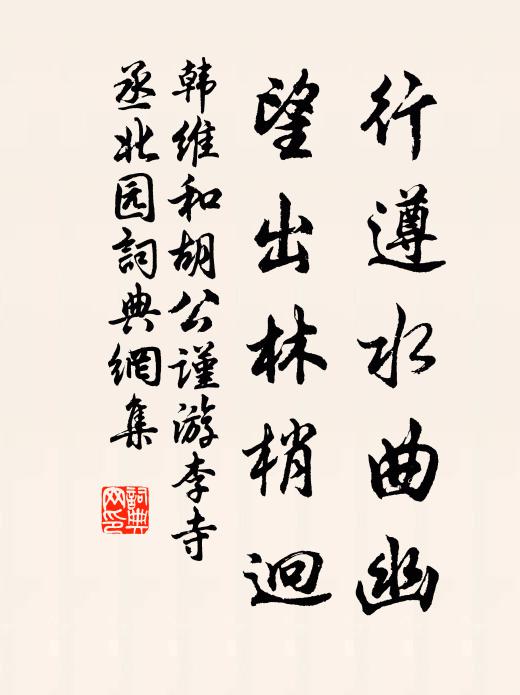 行遵水曲幽
望出林梢迥
韩维和胡公谨游李寺
丞北园詞典網集
詞典
网印